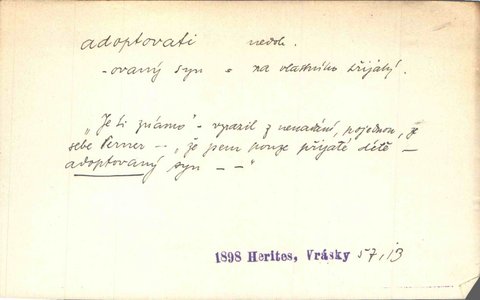 adoptovati nedok.
-ovaný syn = za vlastního přijatý.
„Je ti známo" - vyrazil z nenadání, pojednou, ze
sebe Verner -- „že jsem pouze přijaté dítě —
adoptovaný syn — — "
1898 Herites, Vrásky 57, 13